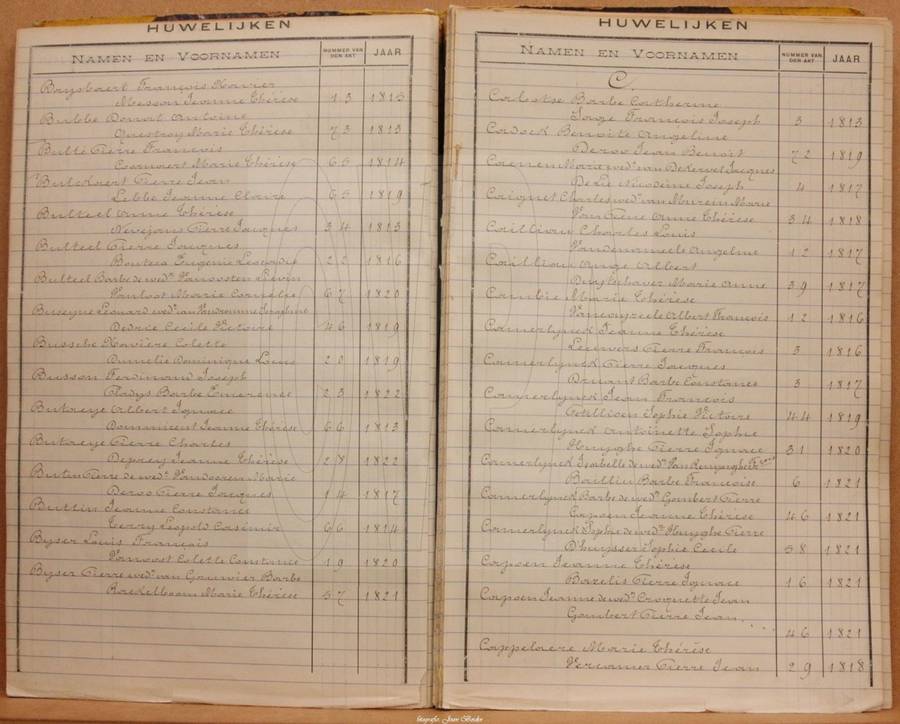 HUWELIJKEN
NAMEN EN VOORNAMEN NUMMER VAN DEN AKT JAAR
Buysbaert François Xavier
Messon Jeanne Thérèse 13 1813
Bubbe Donat Antoine
Questroy Marie Thérèse 73 1813
Bulté Pierre François
Coornaert Marie Thérèse 65 1814
Butckaert Pierre Jean
Lebbe Jeanne Claire 65 1819
Bulteel Anne Thérèse
Nevejans Pierre Jacques 34 1813
Bulteel Pierre Jacques
Bontera Eugenie Leocadie 22 1816
Bulteel Barbe de wed. Vanoosten Livin
Vanloot Marie Cornélie 67 1820
Buseyne Leonard wed. van Vandromme Josephine
Dedrie Cecile Victoire 46 1819
Bussche Xavière Colette
Dumelie Dominique Louis 20 1819
Busson Ferdinand Joseph
Gladys Barbe Emerence 23 1822
Butaeye Albert Ignace
Dommicent Jeanne Thérèse 66 1813
Butaeye Pierre Charles
Deprey Jeanne Thérèse 28 1822
Butin Pierre de wed. Vandooren Marie
Deroo Pierre Jacques 14 1817
Buttin Jeanne Constance
Terry Léopold Casimir 66 1814
Byser Louis François
Vanoost Colette Constance 19 1820
Byser Pierre wed. van Gauwier Barbe
Raekelboom Marie Thérèse 57 1821
HUWELIJKEN
NAMEN EN VOORNAMEN NUMMER VAN DEN AKT JAAR
C.
Barbe Catherine
François Joseph 3 1813
Benoite Angeline
Deroo Jean Benoit 72 1819
Coenen Marie wed. van Dekervel Jacques
Joseph 4 1817
Charles wed. van Marie
Anne Thérèse 34 1818
Cailliau Charles Louis
Vandenameele Angeline 12 1817
Cailliau Ange Albert
Duyfschaver Marie Anne 39 1817
Cambie Marie Thérèse
Albert François 12 1816
Camerlynck Jeanne Thérèse
Leuwers Pierre François 3 1816
Camerlynck Pierre Jacques
Druant Barbe Constance 3 1817
Camerlynck Jean François
Sophie Victoire 44 1819
Camerlynck Antoinette Sophie
Huyghe Pierre Ignace 31 1820
Camerlynck Isabelle de wed. Van
Baillin Barbe Françoise 6 1821
Camerlynck Barbe de wed. Gombert Pierre
Capoen Jeanne Thérèse 46 1821
Camerlynck Sophie de wed. Huyghe Pierre
D'huysser Sophie Cecile 58 1821
Capoen Jeanne Thérèse
Bazelis Pierre Ignace 16 1821
Capoen Jeanne de wed. Croquette Jean
Gombert Pierre Jean .... 46 1821
Cappelaere Marie Thérèse
Vercamer Pierre Jean 29 1818